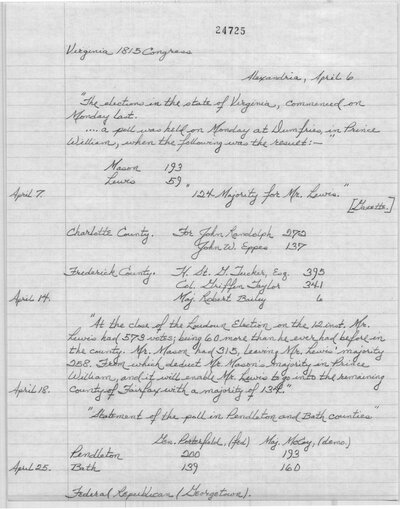 24725
Virginia 1815 Congress
Alexandria, April 6
"The elections in the state of Virginia, commenced on
Monday last.
....a poll was held on Monday at Dumfries, in Prince
William, when the following was the result:— "
Mason 193
Lewis 59
April 7. "124 Majority for Mr. Lewis."
[Gazette.]
Charlotte County. For John Randolph 272
John W. Eppes 137
Frederick County. H. St. G. Tucker, Esq. 395
Col. Griffin Taylor 341
April 14. Maj. Robert Baily 6
"At the close of the Loudoun Election on the 12 inst. Mr.
Lewis had 573 votes; being 60 more than he ever had before in
the county. Mr. Mason had 315, leaving Mr. Lewis' majority
258. From which deduct Mr. Mason's majority in Prince
William, and it will enable Mr. Lewis to go into the remaining
April 18. County of Fairfax with a majority of 134."
"Statement of the poll in Pendleton and Bath counties"
Gen. Porterfield, (fed) Maj. McCoy, (demo.)
Pendleton 200 193
April 25. Bath 139 160
Federal Republican (Georgetown).